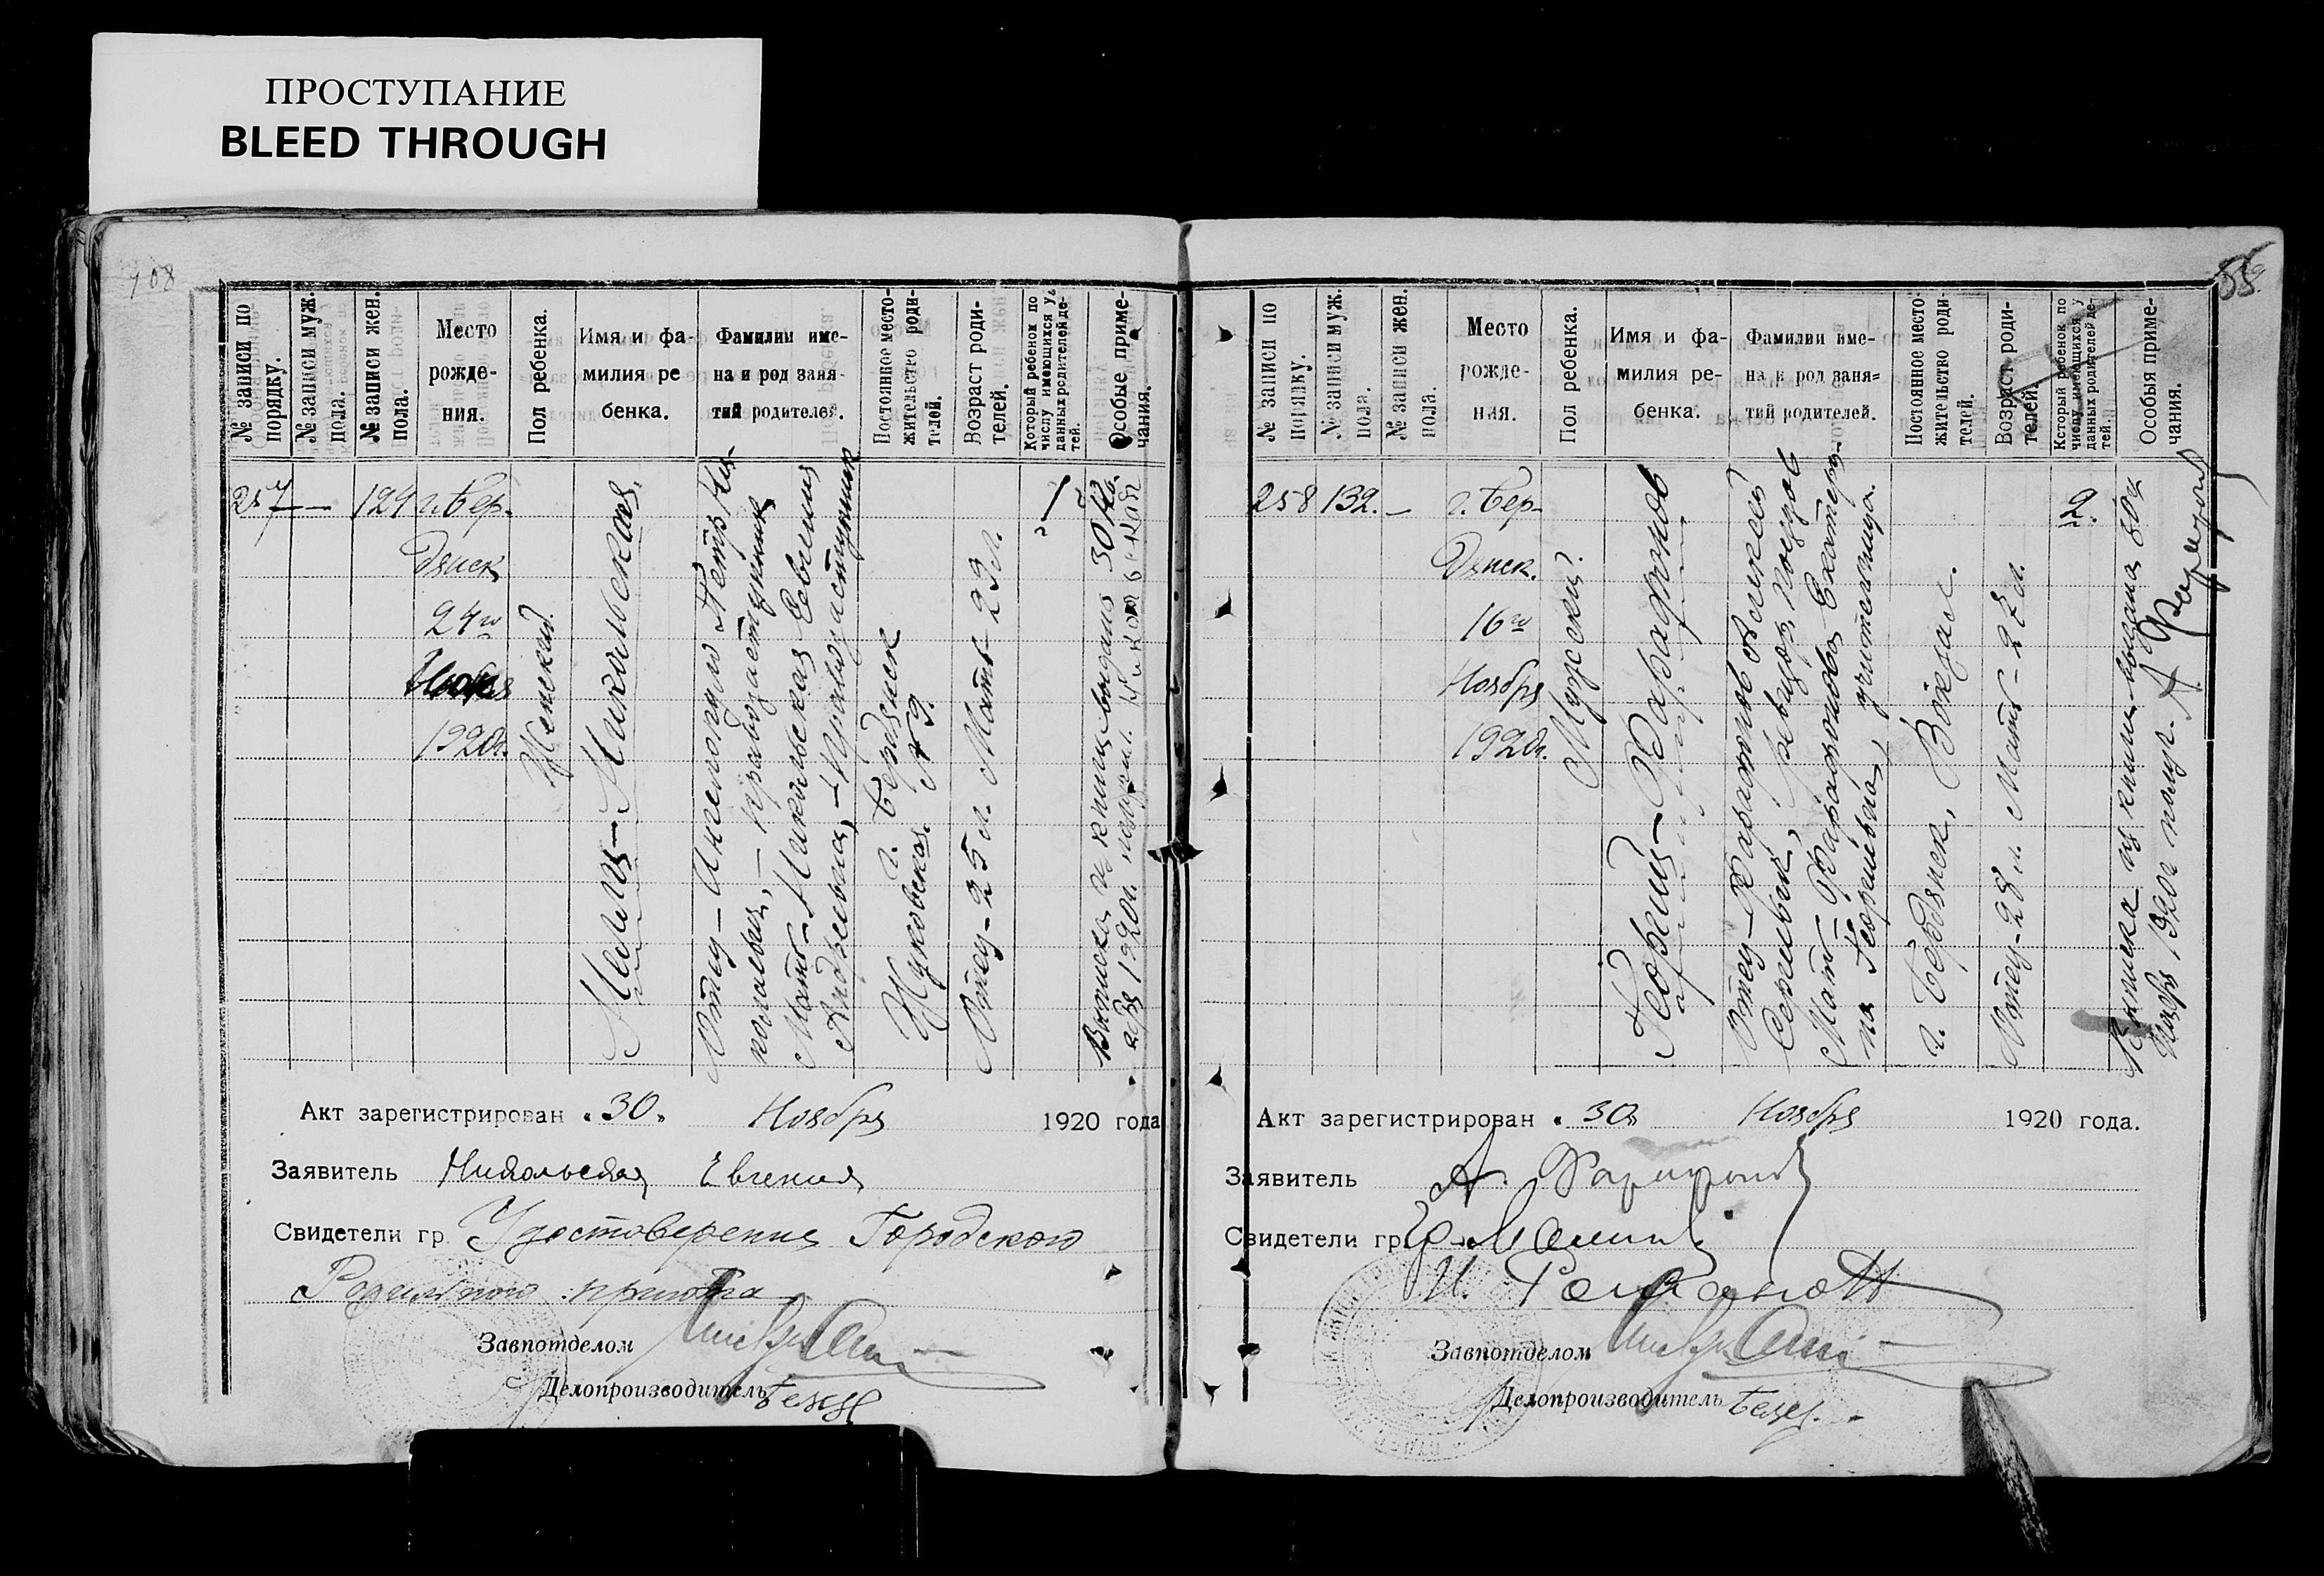 ПРОСТУПАНИЕ
BLEED THROUGH
108
№ записи по
порядку.
№ записи муж.
пола.
№ записи жен.
пола.
Место
рожде-
ния.
Пол ребенка.
Имя и фа-
милия ре
бенка.
Фамилии име-
на и род заня-
тий родителей.
Постоянное место-
жительство роди-
телей.
Возраст роди-
телей.
Который ребенок по
числу имеющихся у
данных родителей де-
тей.
Особые приме-
чания.
257
—
124
г. Бер-
дянск
24го
Ноября
1920г.
Женский.
Никольская.
Отец — Петр Ни-
колаевич, —
Мать — Никольская Евгения
Андреевна, —
г. Бердянск
Жуковская № 9.
Отец — 25 л. Мать — 23 л.
1
Выписка из книги выдана 30 Но-
ября 1920г.
Акт зарегистрирован „30„ Ноября 1920 года
Заявитель Никольская Евгения
Свидетели гр. Удостоверение Городского
Родильного приюта
Завпотделом
Делопроизводитель
№ записи по
порядку.
№ записи муж.
пола.
№ записи жен.
пола.
Место
рожде-
ния.
Пол ребенка.
Имя и фа-
милия ре-
бенка.
Фамилии име-
на и род заня-
тий родителей.
Постоянное место-
жительство роди-
телей.
Возраст роди-
телей.
Который ребенок по
числу имеющихся у
данных родителей де-
тей.
Особыя приме-
чания.
258
132.
—
г. Бер-
дянск.
16го
Ноября
1920г.
Мужской.
Георгий — Фарафонов
Отец — Фарафонов Алексей
Сергеевич, ревизор поездов
Мать — Фарафонова Екатери-
на Георгиевна, учительница.
г. Бердянск, Вокзал.
Отец — 28 л. Мать — 27 л.
2.
Выписка из книги выдана 30го
Ноября 1920г получ. А
Акт зарегистрирован „30„ Ноября 1920 года.
Заявитель А. Фарафонов
Свидетели гр.
И.
Завпотделом
Делопроизводитель